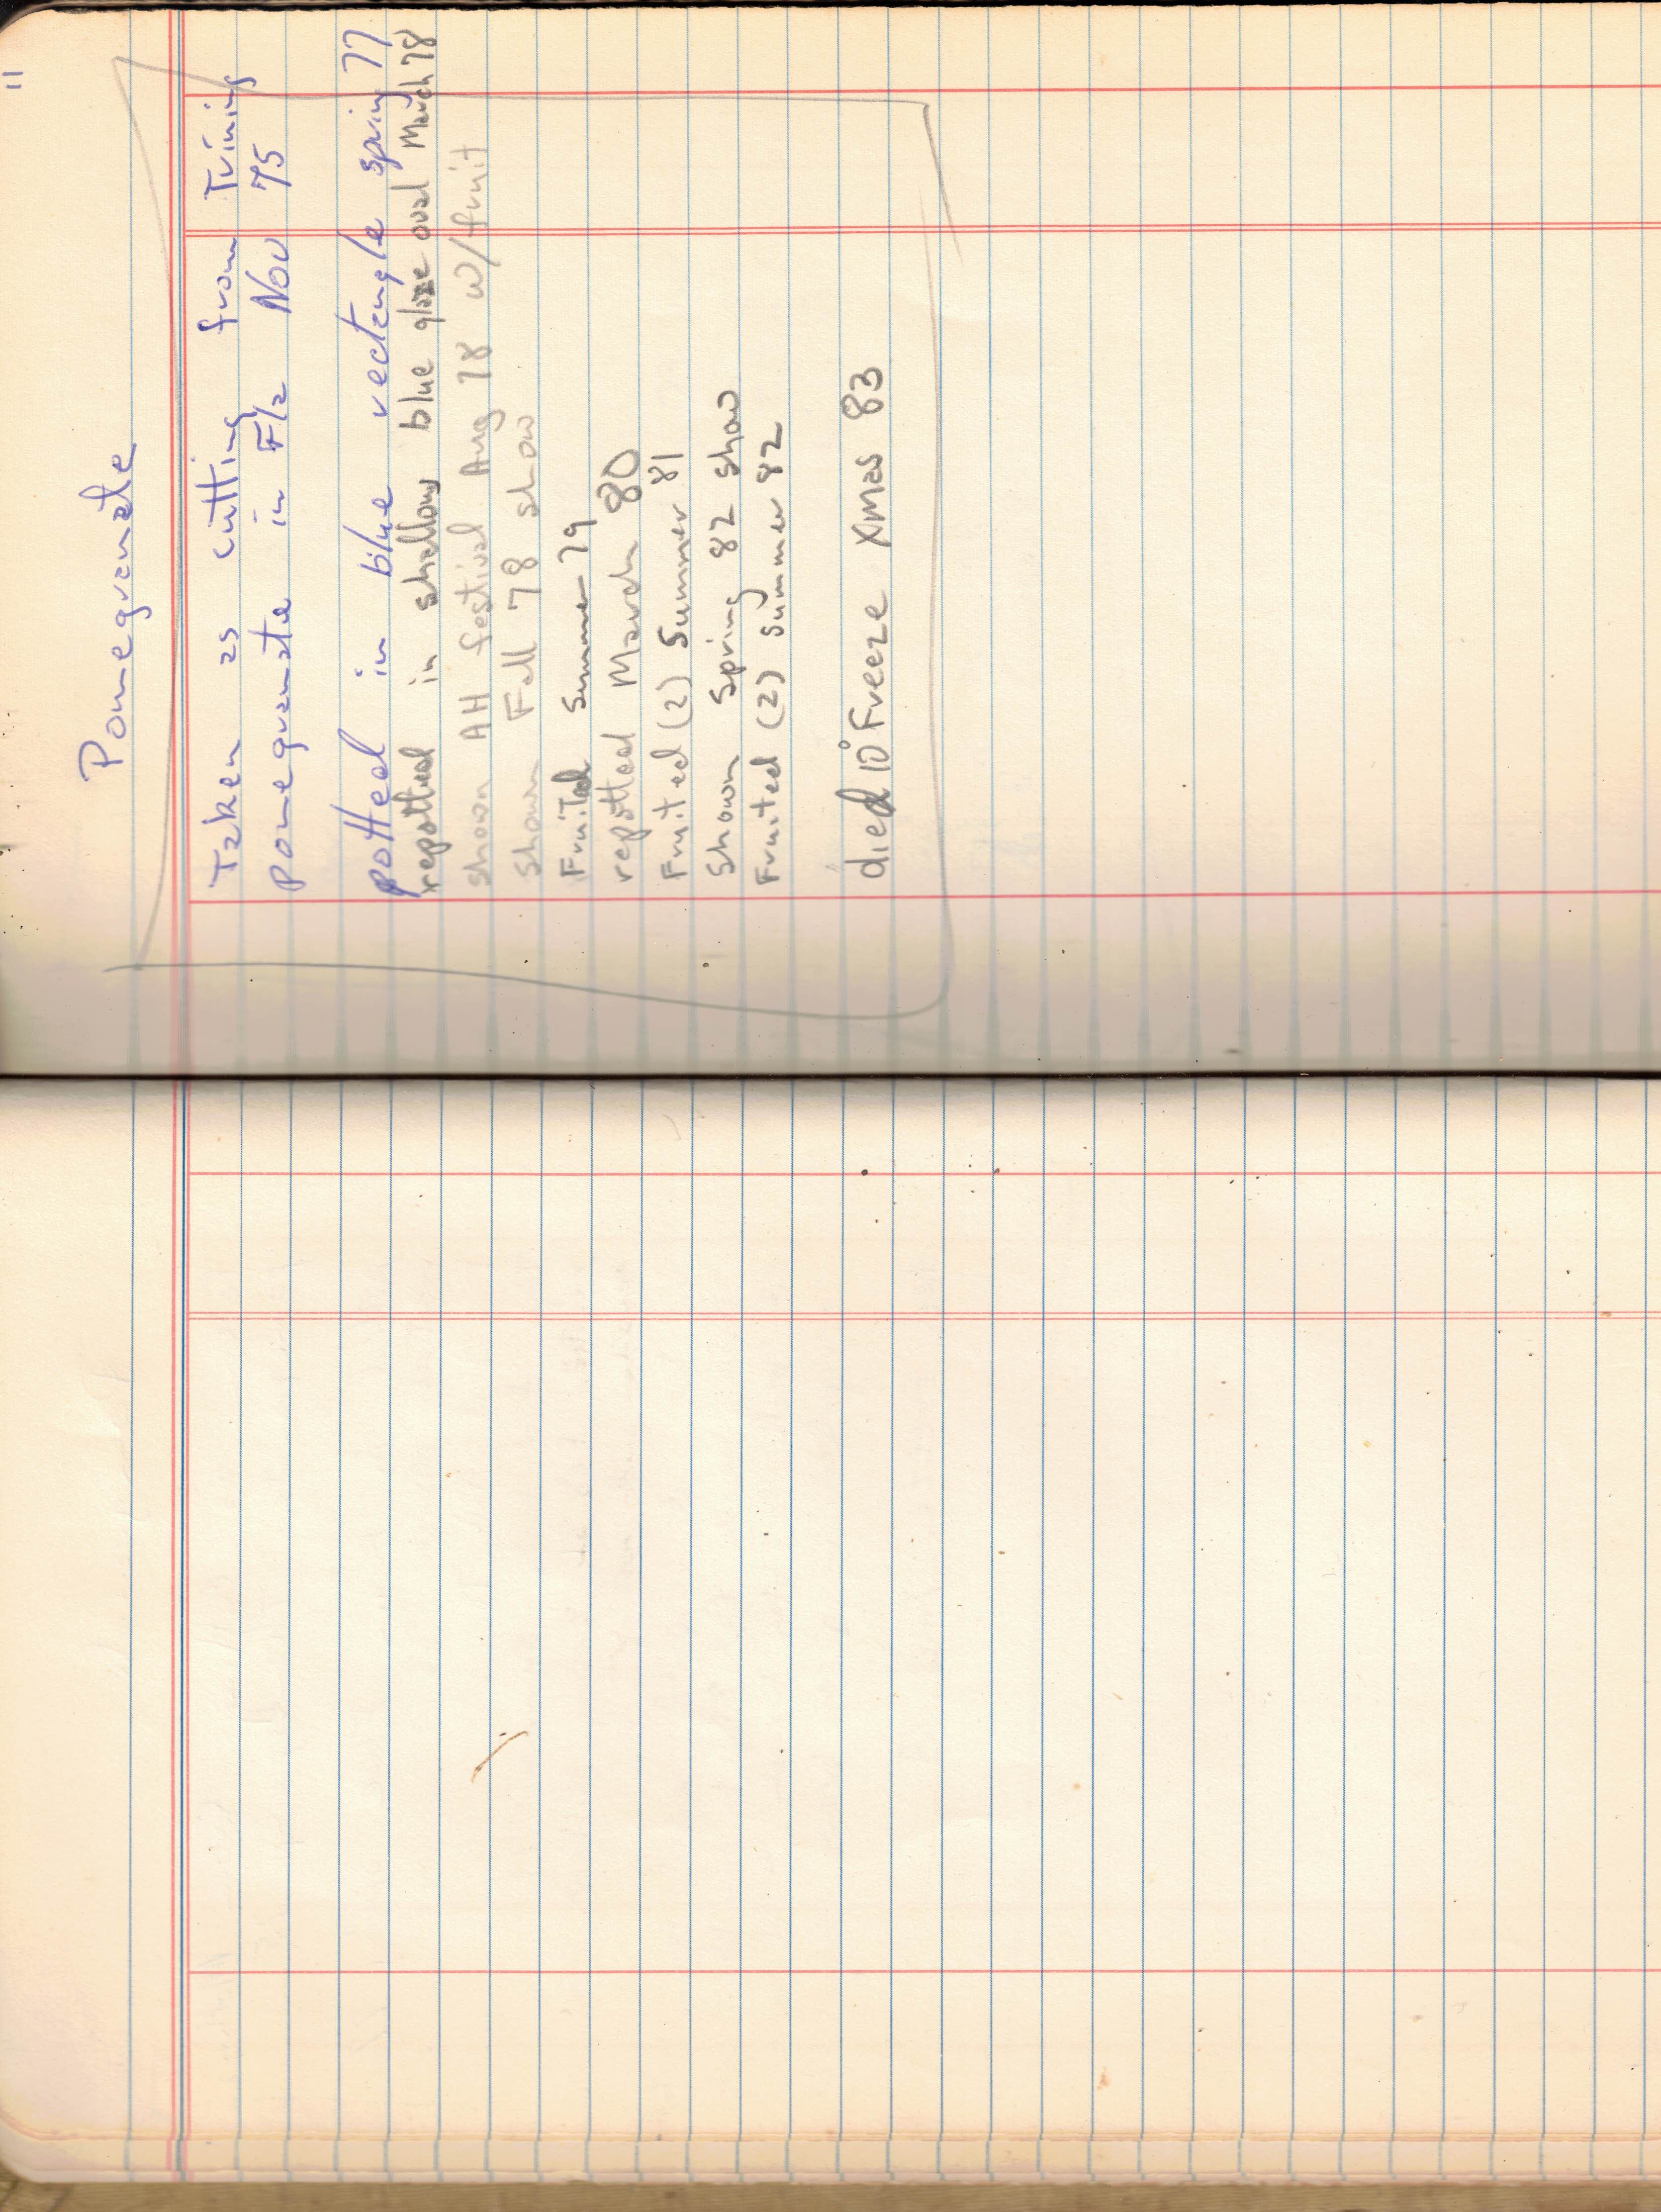 11
Pomegranate
Taken as cutting from Trining
pomegranate in Fla Nov 75
potted in blue rectangle spring 77
repotted in shallow blue glaze oval March 78
shown AH festival Aug 78 w/fruit
shown Fall 78 show
Fruited Summer 79
repotted March 80
Fruited (2) Summer 81
Shown Spring 82 show
Fruited (2) Summer 82
died 10° Freeze Xmas 83